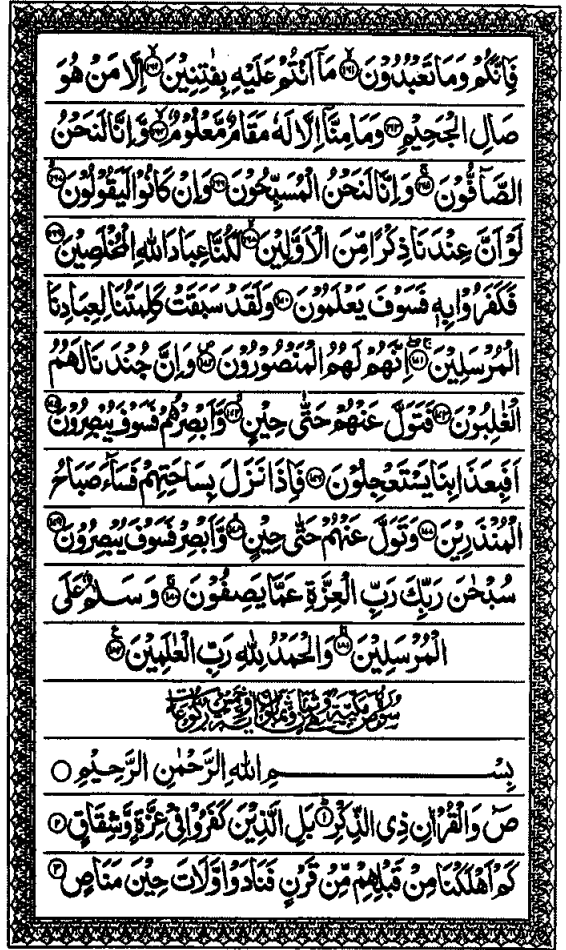 فَاِنَّكُمْ وَمَا تَعْبُدُوْنَ ۙ﴿۱۶۱﴾ مَاۤ اَنْتُمْ عَلَيْهِ بِفٰتِنِيْنَ ۙ﴿۱۶۲﴾ اِلَّا مَنْ هُوَ
صَالِ الْجَحِيْمِ ﴿۱۶۳﴾ وَمَا مِنَّاۤ اِلَّا لَهٗ مَقَامٌ مَّعْلُوْمٌ ۙ﴿۱۶۴﴾ وَّاِنَّا لَنَحْنُ
الصَّآفُّوْنَ ۚ﴿۱۶۵﴾ وَاِنَّا لَنَحْنُ الْمُسَبِّحُوْنَ ﴿۱۶۶﴾ وَاِنْ كَانُوْا لَيَقُوْلُوْنَ ۙ﴿۱۶۷﴾
لَوْ اَنَّ عِنْدَنَا ذِكْرًا مِّنَ الْاَوَّلِيْنَ ۙ﴿۱۶۸﴾ لَكُنَّا عِبَادَ اللّٰهِ الْمُخْلَصِيْنَ ﴿۱۶۹﴾
فَكَفَرُوْا بِهٖ فَسَوْفَ يَعْلَمُوْنَ ﴿۱۷۰﴾ وَلَقَدْ سَبَقَتْ كَلِمَتُنَا لِعِبَادِنَا
الْمُرْسَلِيْنَ ۚۖ﴿۱۷۱﴾ اِنَّهُمْ لَهُمُ الْمَنْصُوْرُوْنَ ۪﴿۱۷۲﴾ وَاِنَّ جُنْدَنَا لَهُمُ
الْغٰلِبُوْنَ ﴿۱۷۳﴾ فَتَوَلَّ عَنْهُمْ حَتّٰى حِيْنٍ ۙ﴿۱۷۴﴾ وَّاَبْصِرْهُمْ فَسَوْفَ يُبْصِرُوْنَ ﴿۱۷۵﴾
اَفَبِعَذَابِنَا يَسْتَعْجِلُوْنَ ﴿۱۷۶﴾ فَاِذَا نَزَلَ بِسَاحَتِهِمْ فَسَآءَ صَبَاحُ
الْمُنْذَرِيْنَ ﴿۱۷۷﴾ وَتَوَلَّ عَنْهُمْ حَتّٰى حِيْنٍ ۙ﴿۱۷۸﴾ وَّاَبْصِرْ فَسَوْفَ يُبْصِرُوْنَ ﴿۱۷۹﴾
سُبْحٰنَ رَبِّكَ رَبِّ الْعِزَّةِ عَمَّا يَصِفُوْنَ ۚ﴿۱۸۰﴾ وَسَلٰمٌ عَلَى
الْمُرْسَلِيْنَ ۚ﴿۱۸۱﴾ وَالْحَمْدُ لِلّٰهِ رَبِّ الْعٰلَمِيْنَ ﴿۱۸۲﴾ ع
بِسْمِ اللّٰهِ الرَّحْمٰنِ الرَّحِيْمِ ○
صٓ وَالْقُرْاٰنِ ذِى الذِّكْرِ ؕ﴿۱﴾ بَلِ الَّذِيْنَ كَفَرُوْا فِىْ عِزَّةٍ وَّشِقَاقٍ ﴿۲﴾
كَمْ اَهْلَكْنَا مِنْ قَبْلِهِمْ مِّنْ قَرْنٍ فَنَادَوْا وَّلَاتَ حِيْنَ مَنَاصٍ ﴿۳﴾